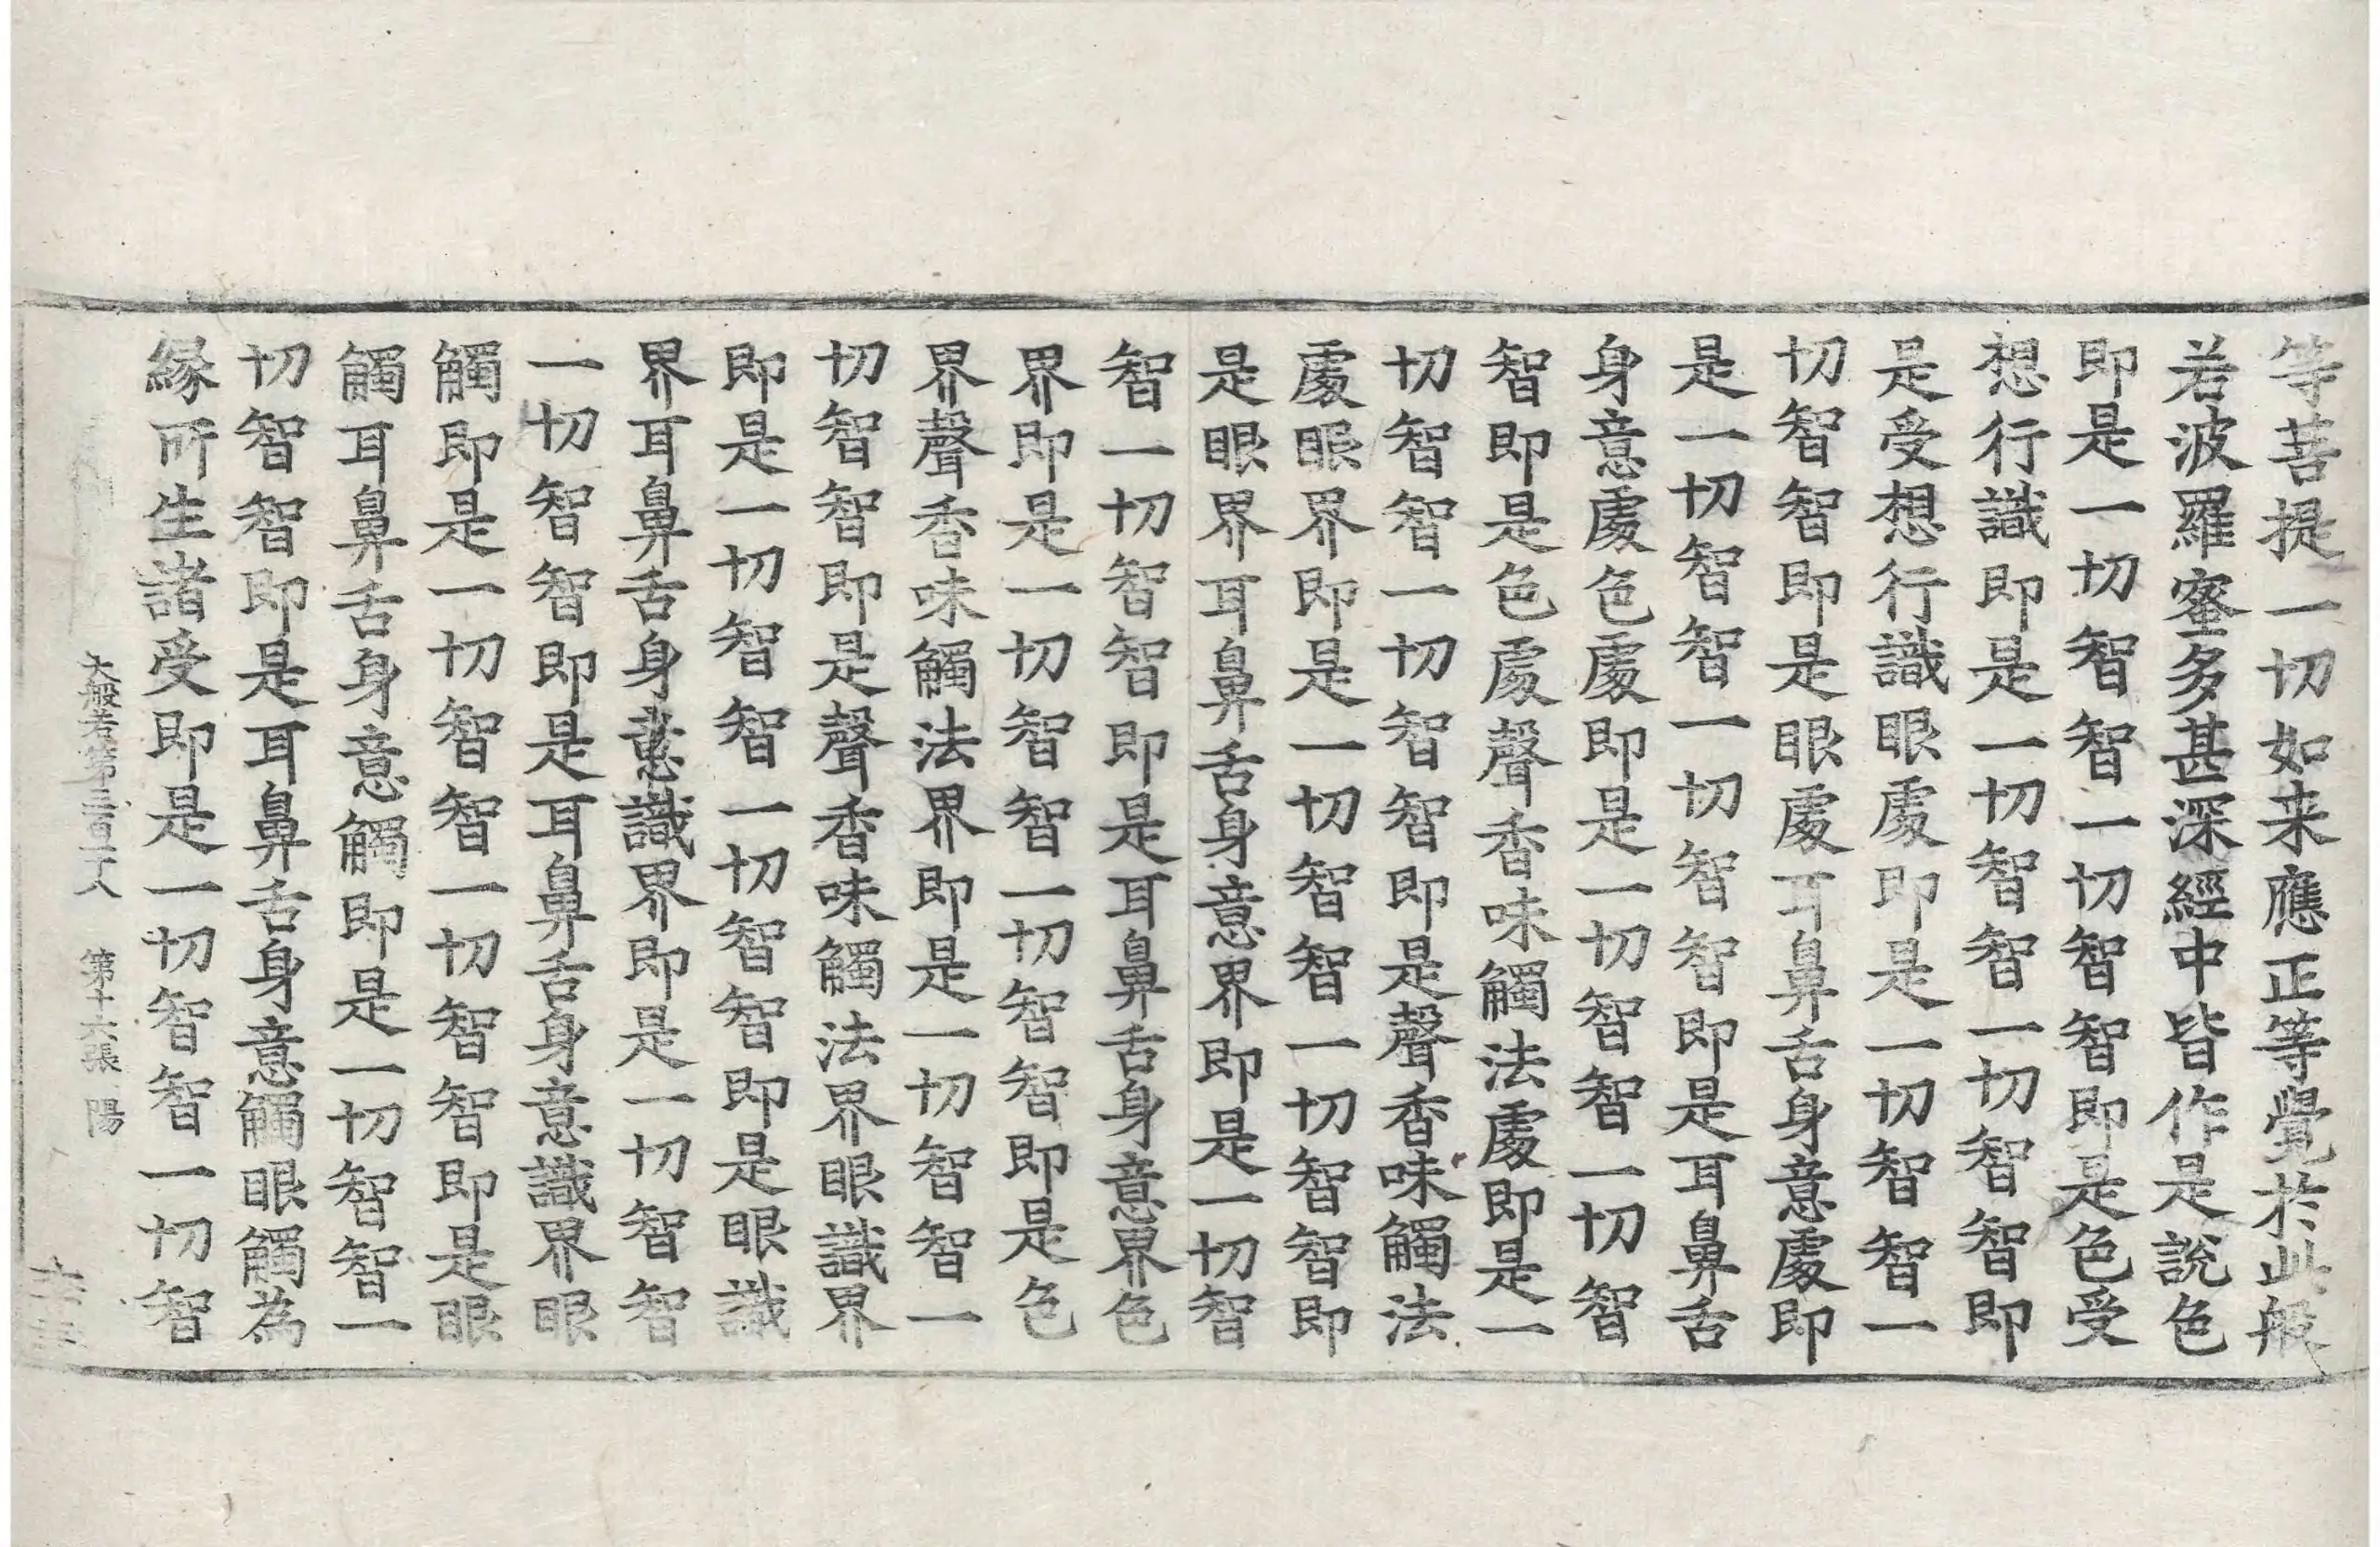 等菩提一切如来應正等覺於此般
若波羅蜜多甚深經中皆作是說色
即是一切智智一切智智即是色受
想行識即是一切智智一切智智即
是受想行識眼處即是一切智智一
切智智即是眼處耳鼻舌身意處即
是一切智智一切智智即是耳鼻舌
身意處色處即是一切智智一切智
智即是色處聲香味觸法處即是一
切智智一切智智即是聲香味觸法
處眼界即是一切智智一切智智即
是眼界耳鼻舌身意界即是一切智
智一切智智即是耳鼻舌身意界色
界即是一切智智一切智智即是色
界聲香味觸法界即是一切智智一
切智智即是聲香味觸法界眼識界
即是一切智智一切智智即是眼識
界耳鼻舌身意識界即是一切智智
一切智智即是耳鼻舌身意識界眼
觸即是一切智智一切智智即是眼
觸耳鼻舌身意觸即是一切智智一
切智智即是耳鼻舌身意觸眼觸為
緣所生諸受即是一切智智一切智
大般若第三百 第十六張 陽